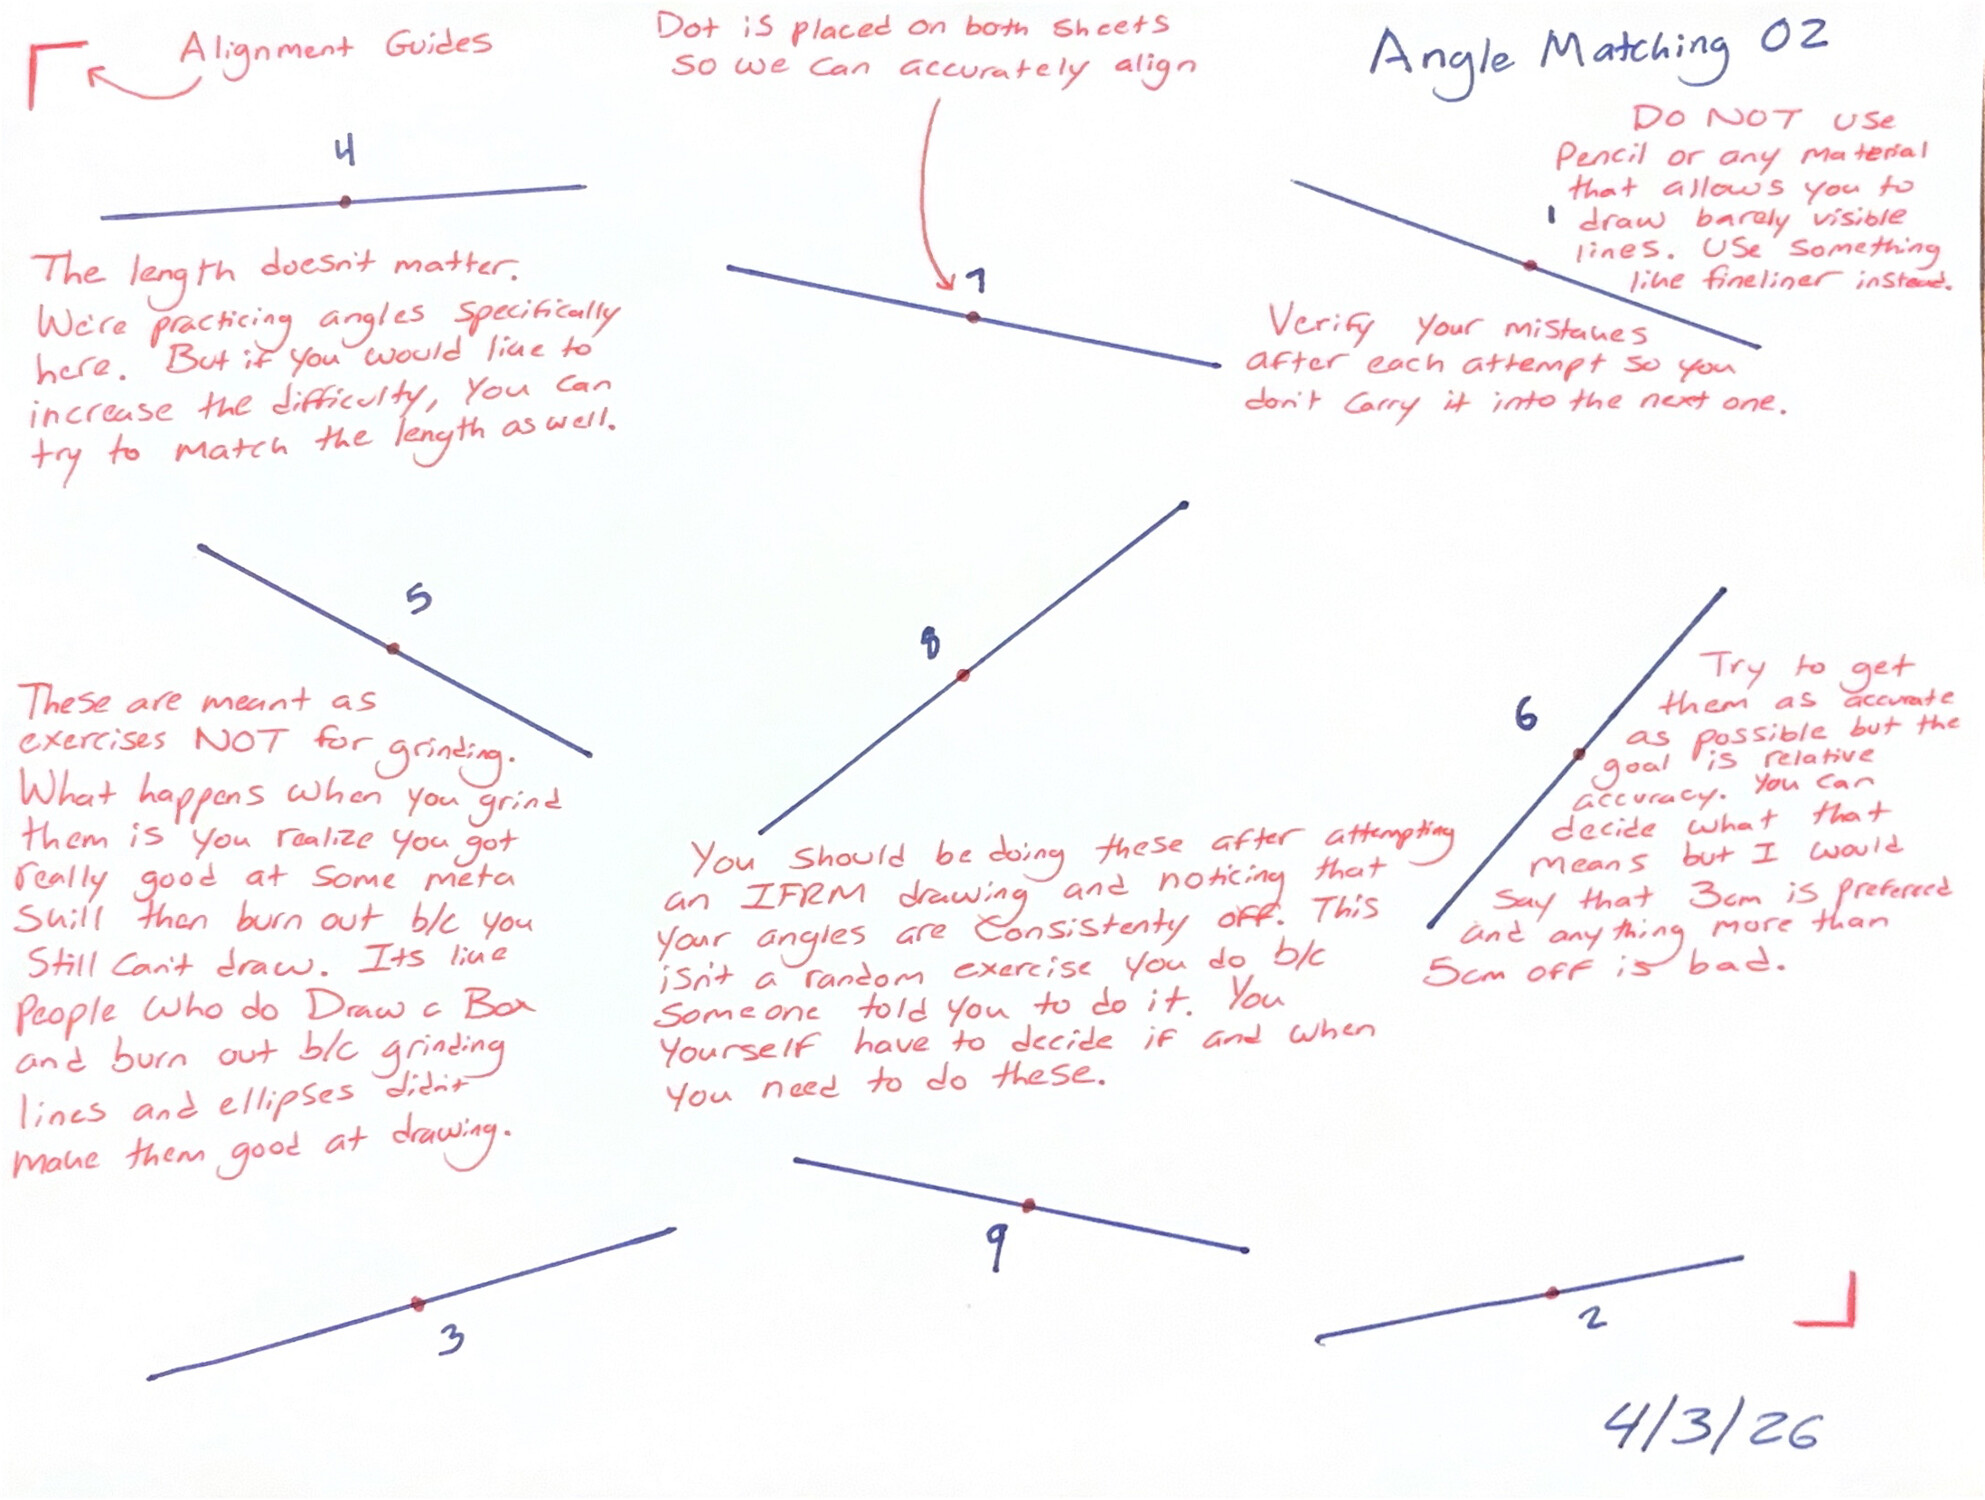 Alignment Guides
Dot is placed on both sheets
so we can accurately align
Angle Matching 02
DO NOT use
Pencil or any material
that allows you to
draw barely visible
lines. Use something
like fineliner instead.
4
7
1
The length doesn't matter.
We're practicing angles specifically
here. But if you would like to
increase the difficulty, you can
try to match the length as well.
Verify your mistakes
after each attempt so you
don't carry it into the next one.
5
8
6
Try to get
them as accurate
as possible but the
goal is relative
accuracy. You can
decide what that
means but I would
say that 3cm is prefereed
and anything more than
5cm off is bad.
These are meant as
exercises NOT for grinding.
What happens when you grind
them is you realize you got
really good at some meta
skill then burn out b/c you
still can't draw. Its like
people who do Draw a Box
and burn out b/c grinding
lines and ellipses didn't
make them good at drawing.
You should be doing these after attempting
an IFRM drawing and noticing that
your angles are consistenty off. This
isn't a random exercise you do b/c
someone told you to do it. You
yourself have to decide if and when
you need to do these.
3
9
2
4/3/26